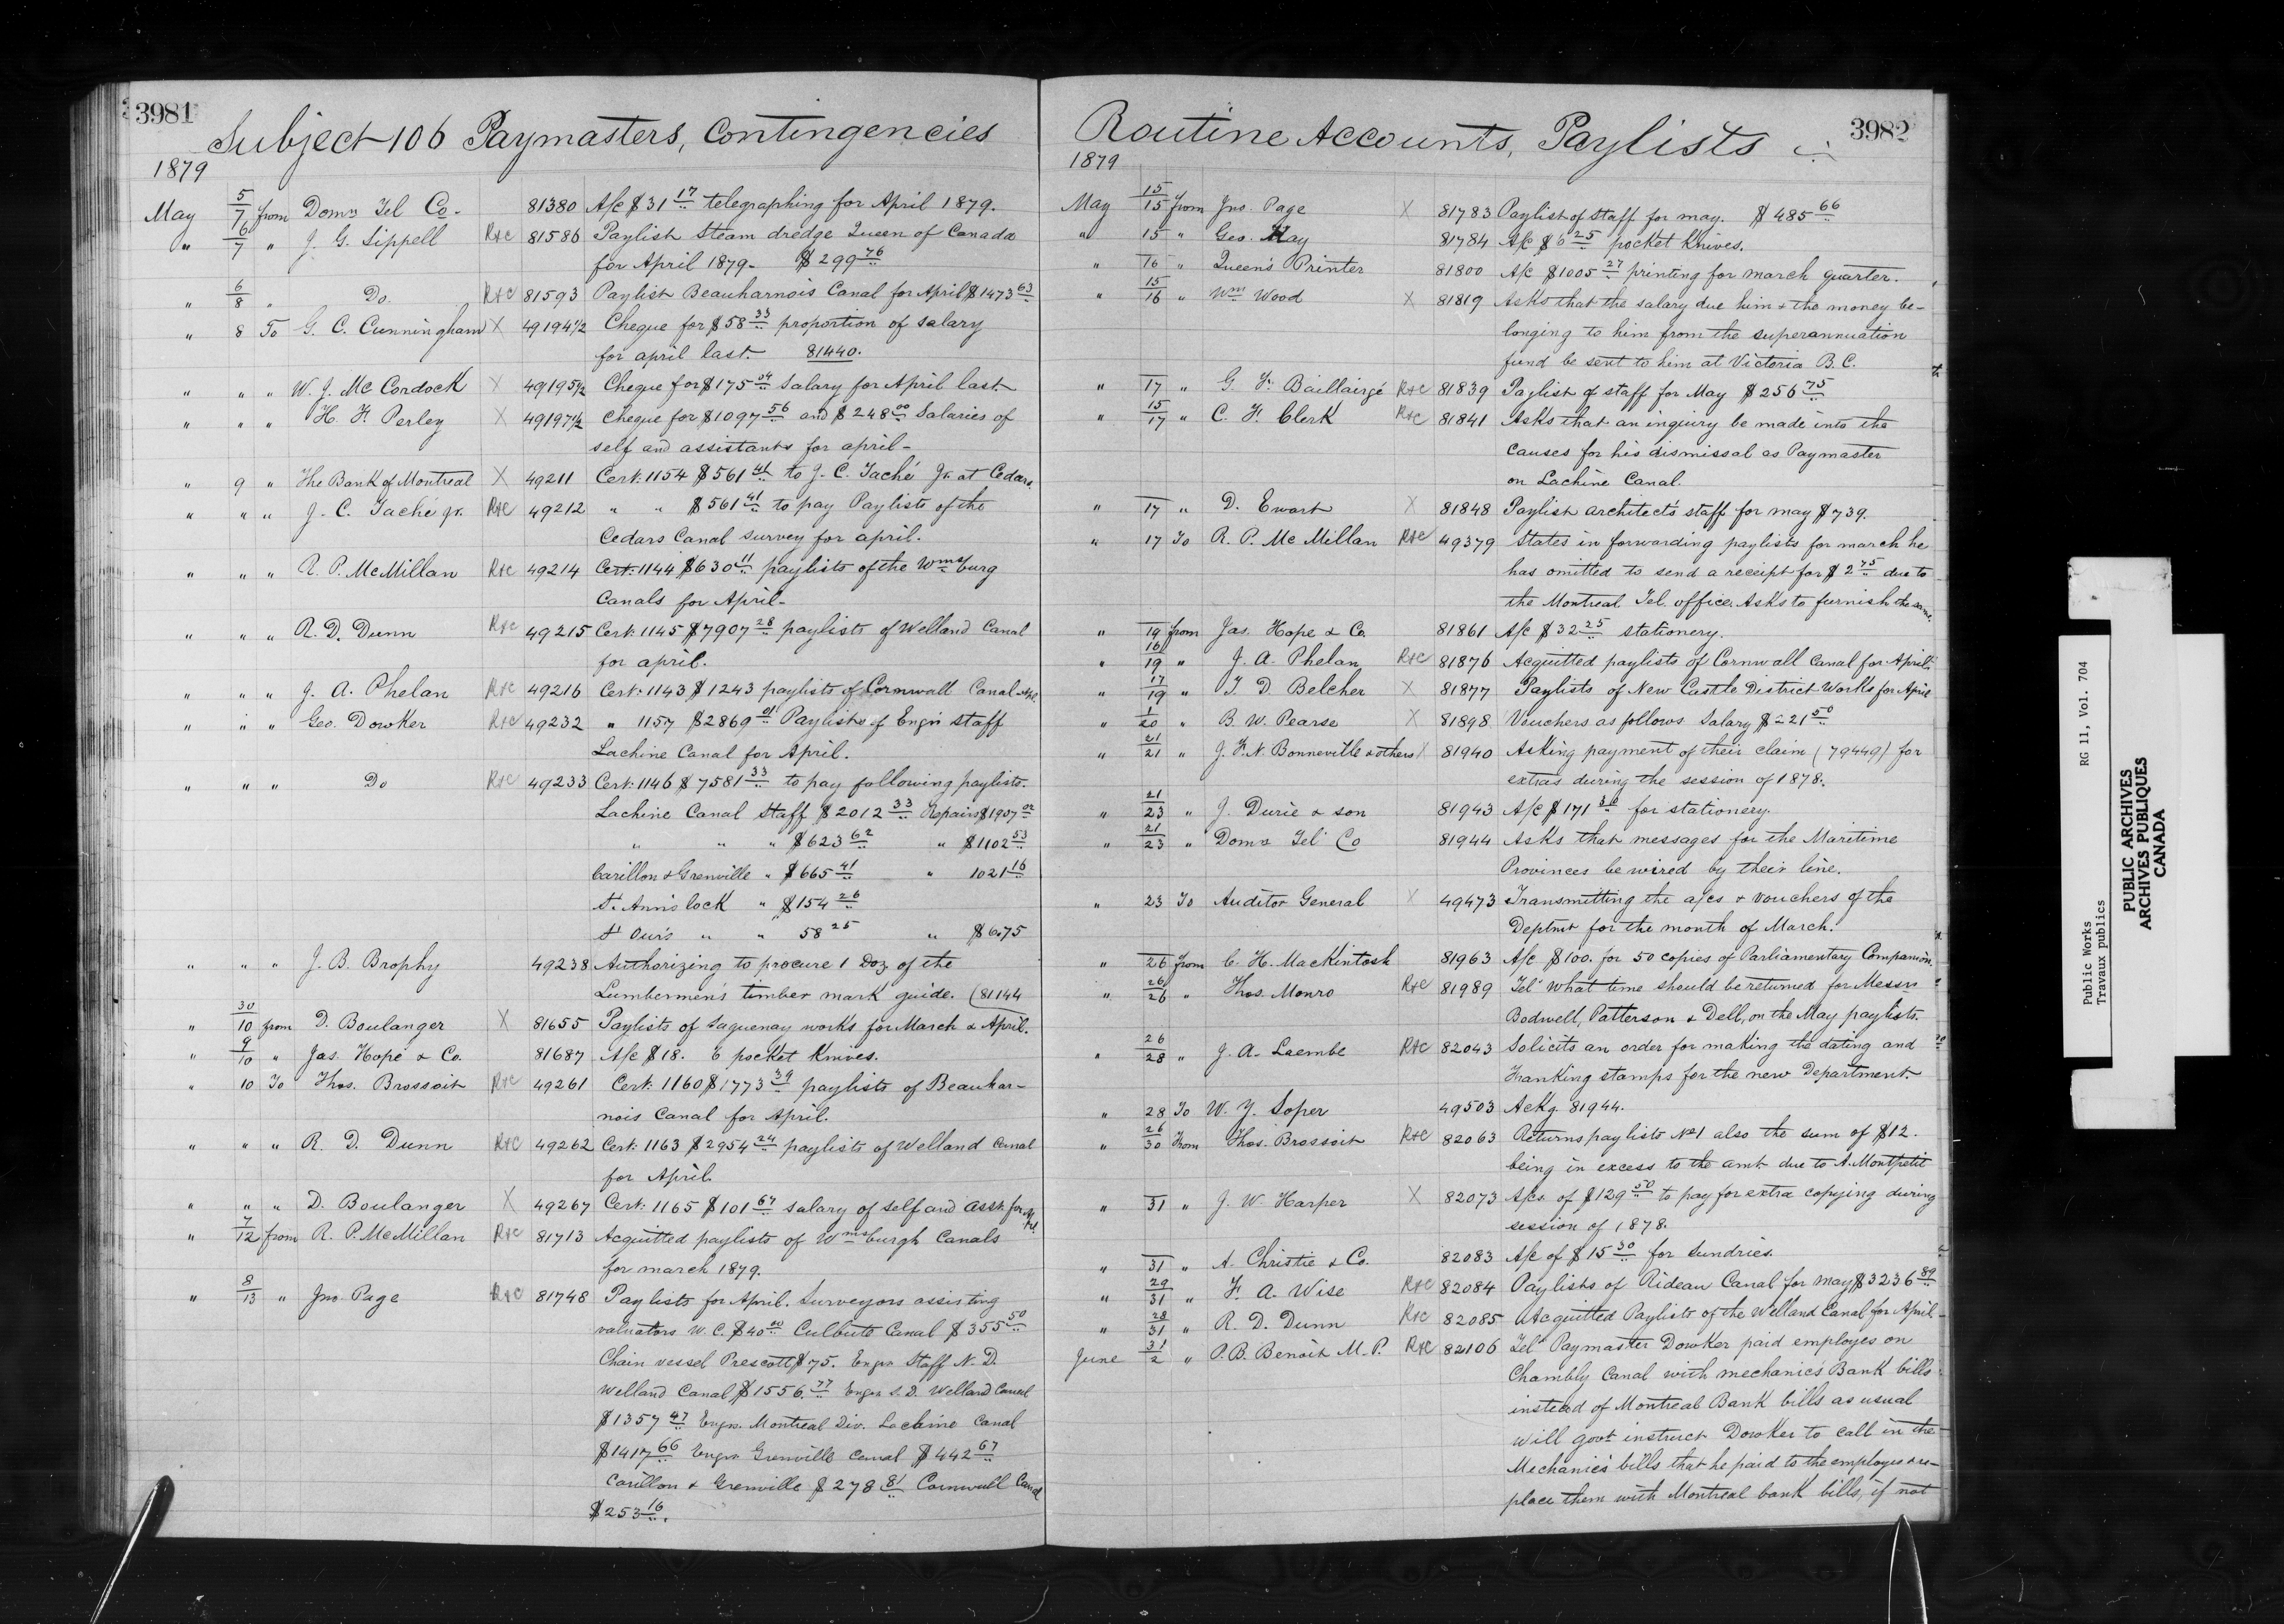 3981
Subject 106 Paymasters, Contingencies
1879
May 5/7 from Domn Tel Co. 81380 A/c $31 17 telegraphing for April 1879.
" 6/7 " J. G. Sippell R&C 81586 Paylist Steam dredge Queen of Canada
for April 1879. $299 76
" 6/8 " Do. R&C 81593 Paylist Beauharnois Canal for April $1473 63
" 8 To G. C. Cunningham X 49194½ Cheque for $58 33 proportion of salary
for april last. 81440.
" " " W. J. McCordock X 49195½ Cheque for $175 04 Salary for April last
" " " H. F. Perley X 49197½ Cheque for $1097 56 and $248 00 Salaries of
self and assistants for april-
" 9 " The Bank of Montreal X 49211 Cert. 1154 $561 41 to J. C. Taché Jr. at Cedars.
" " " J. C. Taché jr. R&C 49212 " " $561 41 to pay Paylists of the
Cedars Canal survey for april.
" " " R. P. McMillan R&C 49214 Cert. 1144 $630 11 paylists of the Wmsburg
Canals for April-
" " " R. D. Dunn R&C 49215 Cert. 1145 $7907 28 paylists of Welland Canal
for april.
" " " J. A. Phelan R&C 49216 Cert. 1143 $1243 paylists of Cornwall Canal
" " " Geo. Dowker R&C 49232 " 1157 $2869 01 Paylists of Engrs staff
Lachine Canal for April.
" " " Do R&C 49233 Cert. 1146 $7581 33 to pay following paylists.
Lachine Canal Staff $2012 33 Repairs $1907 02
" " " $623 62 " $1102 53
Carillon & Grenville " $665 41 " 1021 16
St. Ann's lock " $154 26
St Our's " " 58 25 " $6.75
" " " J. B. Brophy 49238 Authorizing to procure 1 Doz of the
Lumbermen's timber mark guide. (81144
" 30/10 from D. Boulanger X 81655 Paylists of Saguenay works for March & April.
" 9/10 " Jas. Hope & Co. 81687 A/c $18. 6 pocket Knives.
" 10 To Thos. Brossoit R&C 49261 Cert. 1160 $1773 39 paylists of Beauhar-
nois Canal for April.
" " " R. D. Dunn R&C 49262 Cert. 1163 $2954 24 paylists of Welland Canal
for April.
" " " D. Boulanger X 49267 Cert. 1165 $101 67 salary of self and asst. for
" 7/12 from R. P. McMillan R&C 81713 Acquitted paylists of Wmsburgh Canals
for march 1879.
" 8/13 " Jno Page R&C 81748 Paylists for April. Surveyors assisting
valuators W.C. $40 00 Culbute Canal $355 50
Chain vessel Prescott $75. Engrs Staff N. D.
Welland Canal $1556. 77 Engrs S. D. Welland Canal
$1357 47 Engrs. Montreal Div. Lachine Canal
$1417 66 Engrs Grenville Canal $442 67
Carillon & Grenville $278 81 Cornwall Canal
$253 16.
3982
Routine Accounts, Paylists
1879
May 15/15 from Jno. Page X 81783 Paylist of Staff for may. $485 66
" 15 " Geo. May 81784 A/c $6 25 pocket Knives.
" 16 " Queen's Printer 81800 A/c $1005 27 printing for march quarter.
" 15/16 " Wm Wood X 81819 Asks that the salary due him & the money be-
longing to him from the superannuation
fund be sent to him at Victoria B.C.
" 17 " G. F. Baillairgé R&C 81839 Paylist of staff for May $256 75
" 15/17 " C. F. Clerk R&C 81841 Asks that an inquiry be made into the
causes for his dismissal as Paymaster
on Lachine Canal.
" 17 " D. Ewart X 81848 Paylist architect's staff for may $739.
" 17 To R. P. McMillan R&C 49379 States in forwarding paylists for march he
has omitted to send a receipt for $2 75 due to
the Montreal Tel. office. Asks to furnish the same.
" 19 from Jas. Hope & Co. 81861 A/c $32 25 stationery.
" 16/19 " J. A. Phelan R&C 81876 Acquitted paylists of Cornwall Canal for April.
" 17/19 " T. D. Belcher X 81877 Paylists of New Castle District Works for April
" 1/20 " B. W. Pearse X 81898 Vouchers as follows Salary $221 50
" 21/21 " J. F. N. Bonneville & others X 81940 Asking payment of their claim (79449) for
extras during the session of 1878.
" 21/23 " J. Durie & son 81943 A/c $171 30 for stationery.
" 21/23 " Domn Tel Co 81944 Asks that messages for the Maritime
Provinces be wired by their line.
" 23 To Auditor General X 49473 Transmitting the a/cs & vouchers of the
Deptmt for the month of March.
" 26 from C. H. Mackintosh 81963 A/c $100. for 50 copies of Parliamentary Companion.
" 26/26 " Thos. Monro R&C 81989 Tel. What time should be returned for Messrs
Bodwell, Patterson & Dell, on the May paylists.
" 26/28 " J. A. Lacmbe R&C 82043 Solicits an order for making the dating and
Franking stamps for the new Department.
" 28 To W. Y. Soper 49503 Ackg. 81944.
" 26/30 From Thos. Brossoit R&C 82063 Returns paylists No 1 also the sum of $12.
being in excess to the amt due to A. Montpetit
" 31 " J. W. Harper X 82073 A/cs. of $129 50 to pay for extra copying during
session of 1878.
" 31 " A. Christie & Co. 82083 A/c of $15 30 for Sundries.
" 29/31 " F. A. Wise R&C 82084 Paylists of Rideau Canal for May $3236 89
" 28/31 " R. D. Dunn R&C 82085 Acquitted Paylists of the Welland Canal for April
June 31/2 " P. B. Benoit M.P. R&C 82106 Tel. Paymaster Dowker paid employes on
Chambly Canal with mechanic's Bank bills
instead of Montreal Bank bills as usual
will govt instruct Dowker to call in the
Mechanic's bills that he paid to the employes & re-
place them with Montreal bank bills, if not
Public Works RG 11, Vol. 704
Travaux publics
PUBLIC ARCHIVES
ARCHIVES PUBLIQUES
CANADA